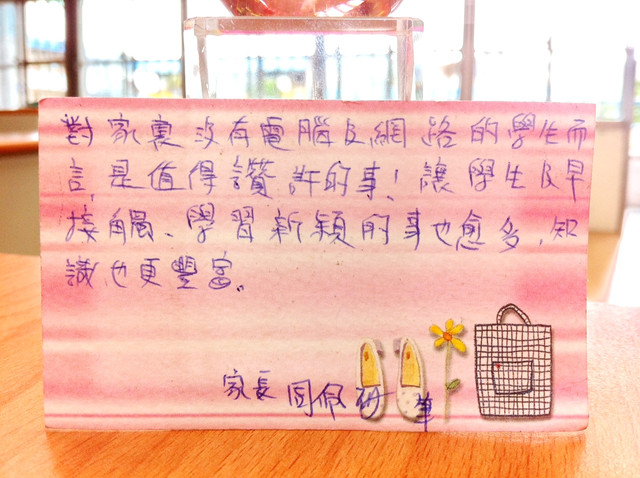 對家裏沒有電腦及網路的學生而
言,是值得讚許的事!讓學生及早
接觸、學習新穎的事也愈多,知
識也更豐富。
家長 周佩研 筆